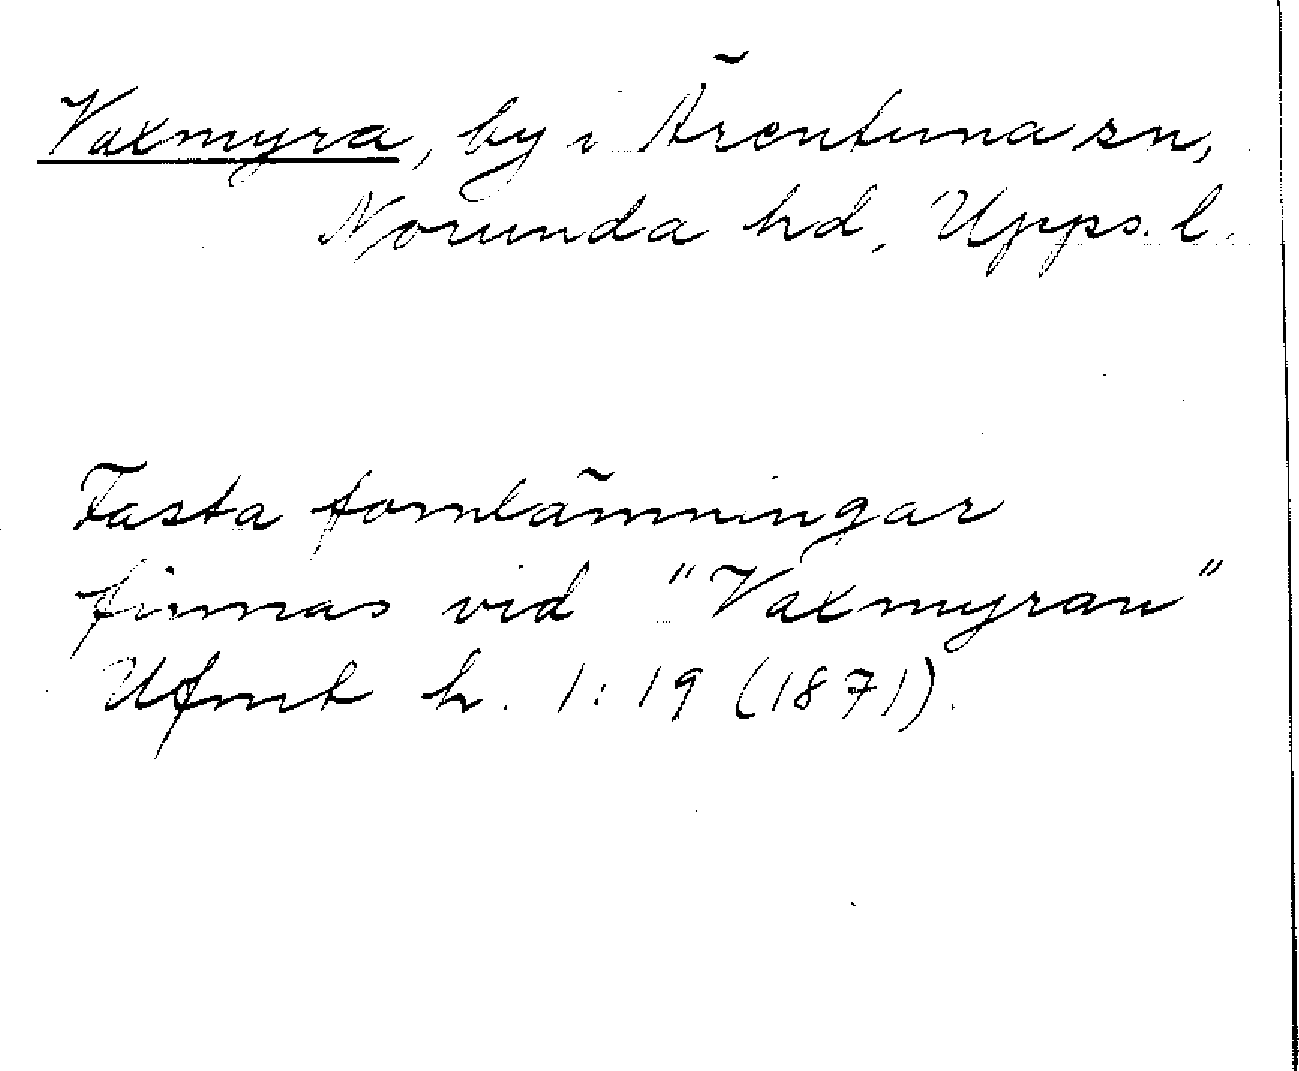 Vaxmyra, by i Ärentuna sn,
Norunda hd, Upps. l.
Fasta fornlämningar
finnas vid "Vaxmyran"
Ufmt h. 1:19 (1871).